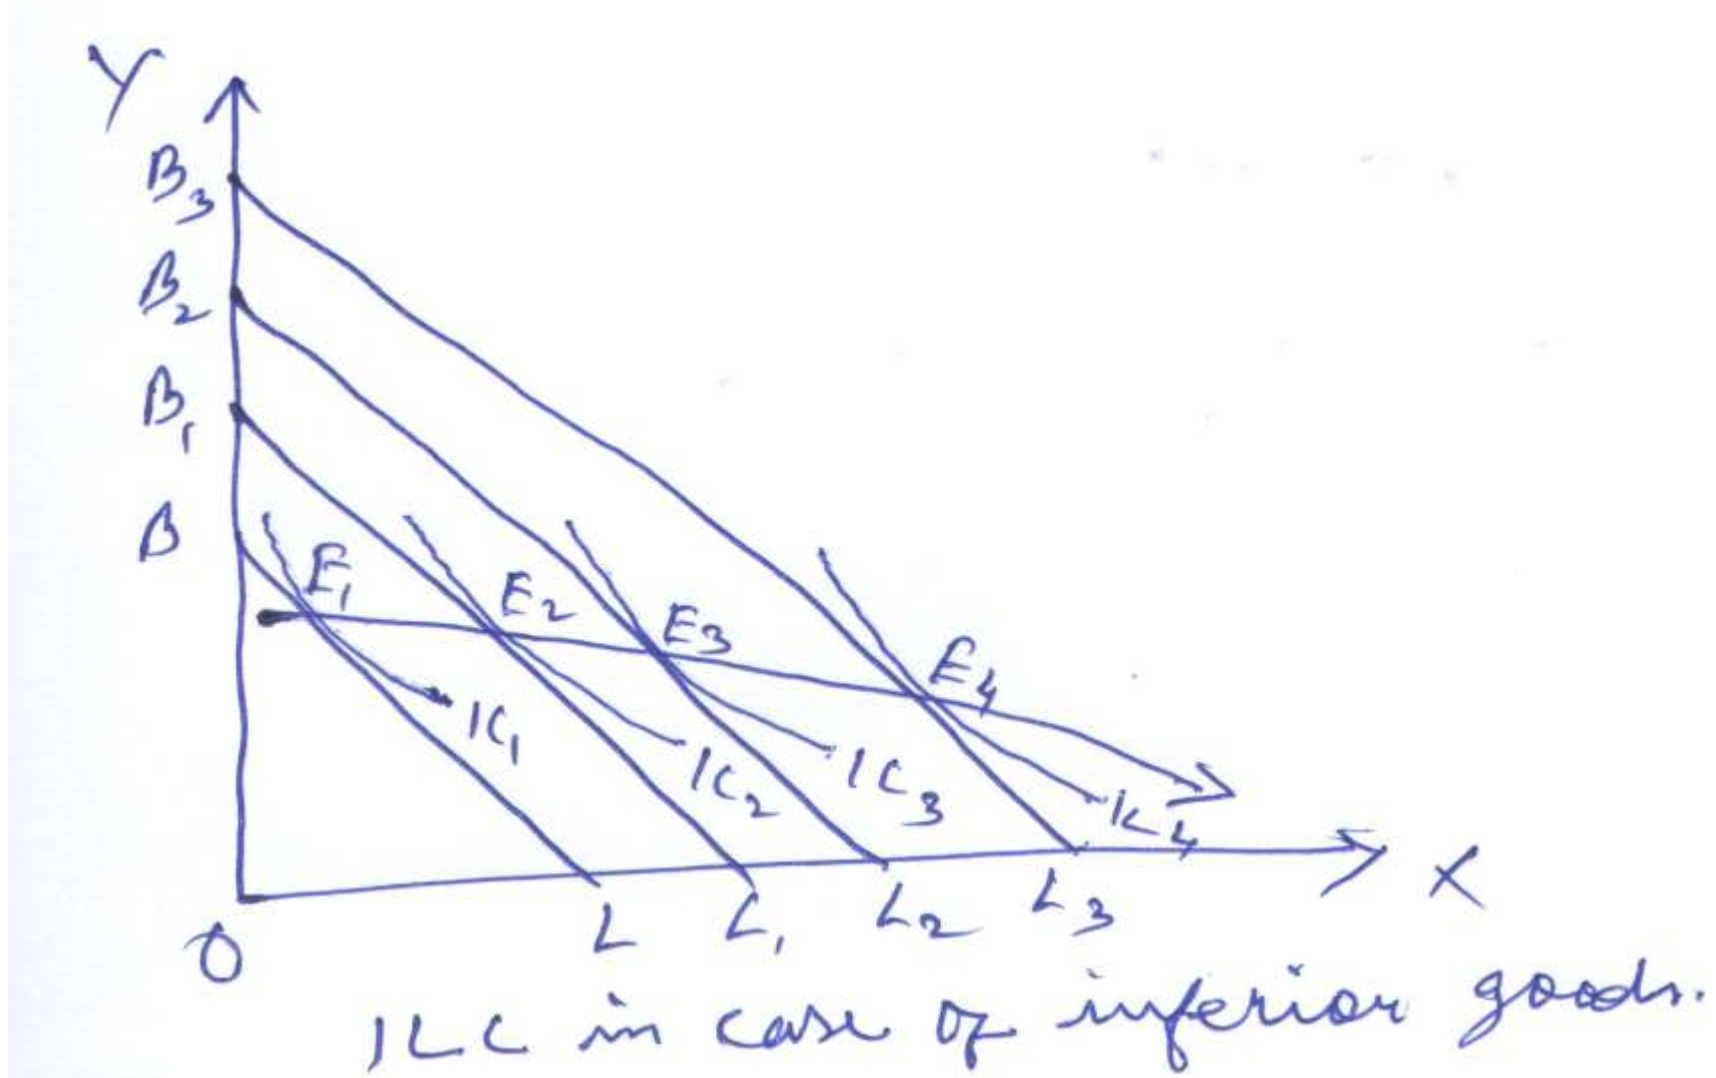 Y
B3
B2
B1
B
E1
E2
E3
E4
IC1
IC2
IC3
IC4
O
L
L1
L2
L3
X
ILC in case of inferior goods.